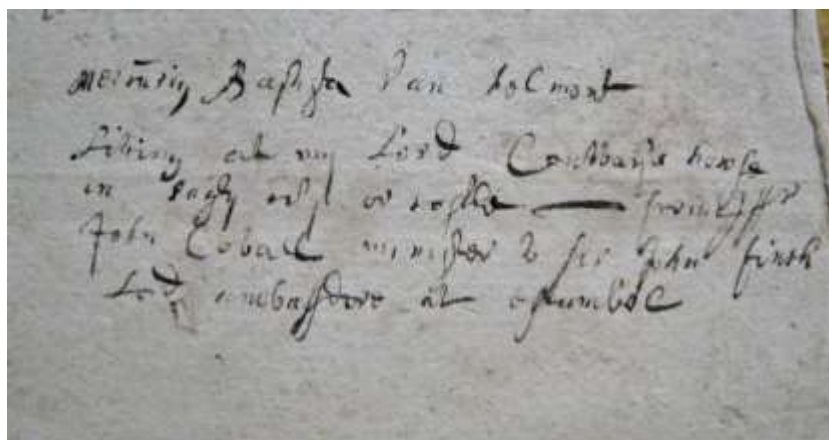 mercūriy Baptista Van helmont
Liuing at my Lord Conway's house
in ragly
John Covall minister to sir John finch
Lord embassdore at